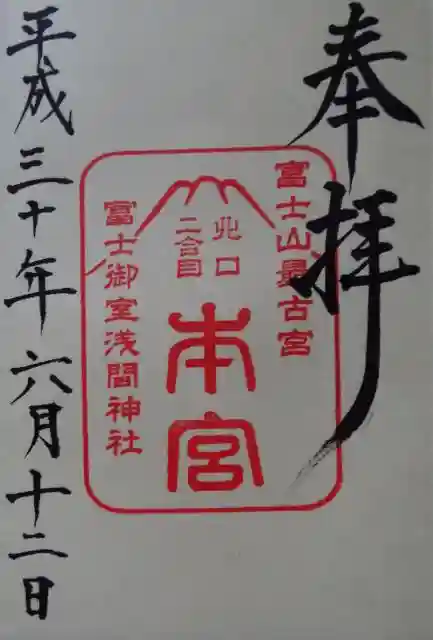 奉拝
富士山最古宮
北口
二合目
本宮
富士御室浅間神社
平成三十年六月十二日